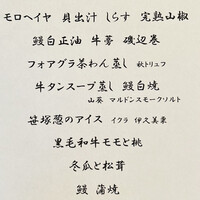 モロヘイヤ 貝出汁 しらす 完熟山椒
鰻白正油 牛蒡 磯辺巻
フォアグラ茶わん蒸し 秋トリュフ
牛タンスープ蒸し 鰻白焼
山葵 マルドンスモークソルト
笹塚葱のアイス イクラ 伊久美栗
黒毛和牛モモと桃
冬瓜と松茸
鰻 蒲焼